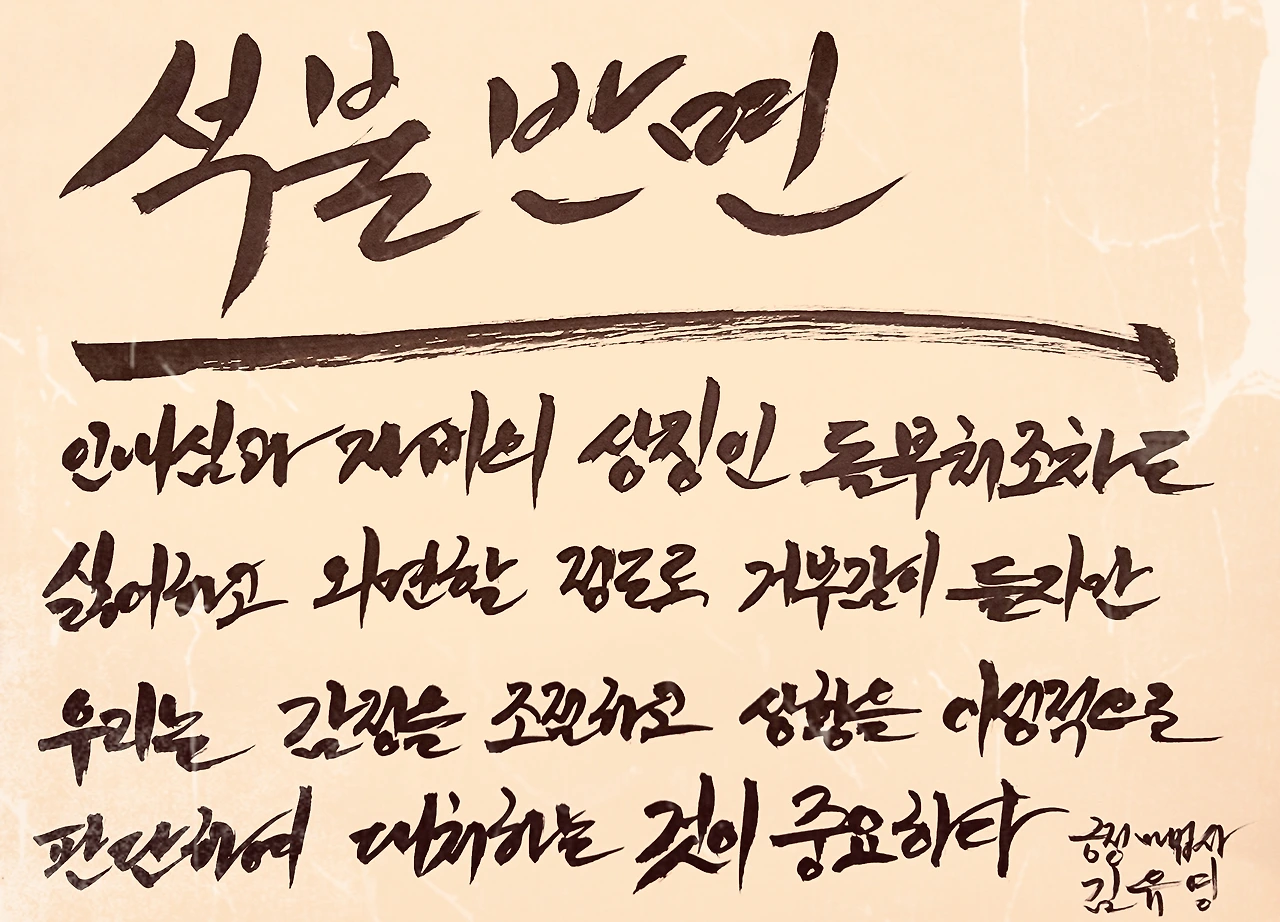 석불반면
인내심과 자비의 상징인 돌부처조차도
싫어하고 외면할 정도로 거부감이 들지만
우리는 감정을 조절하고 상황을 이성적으로
판단하여 대처하는 것이 중요하다
긍정마법사
김유영